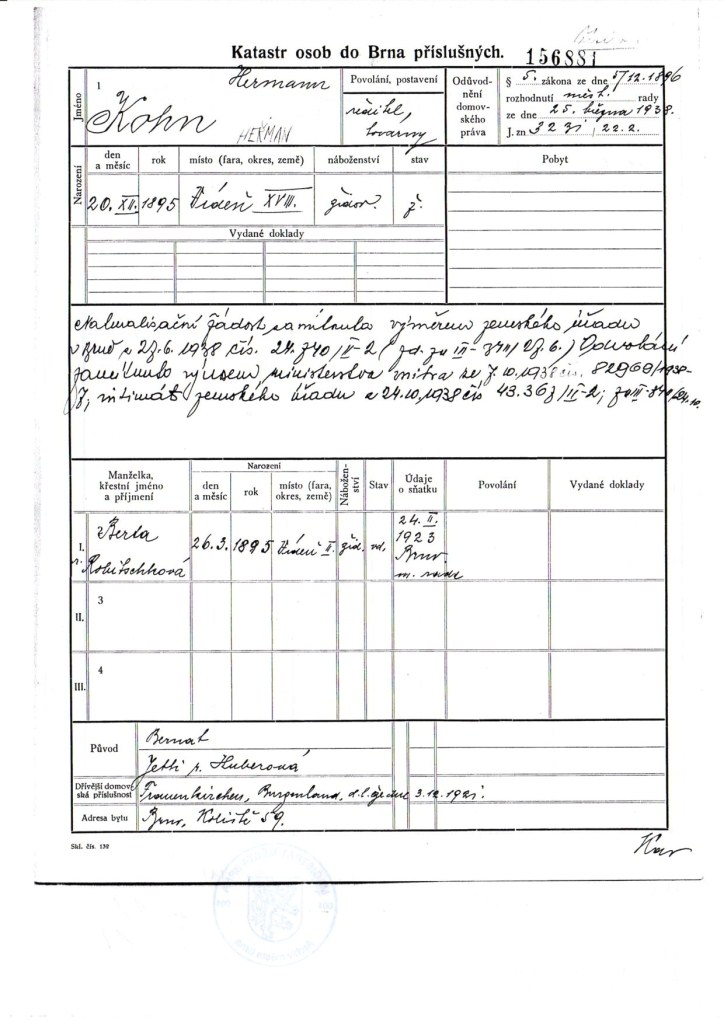 Katastr osob do Brna příslušných.
156881
Jméno
1
Hermann
Kohn
HEŘMAN
Povolání, postavení
ředitel,
továrny
Odůvod-
nění
domov-
ského
práva
§ 5. zákona ze dne 5/12. 1896
rozhodnutí měst. rady
ze dne 25. března 1938.
J. zn 32 zi / 22. 2.
Narození
den
a měsíc
rok
místo (fara, okres, země)
náboženství
stav
Pobyt
20. XII.
1895
Vídeň XVIII.
židov.
ž.
Vydané doklady
Naturalisační žádost zamítnuta výměrem zemského úřadu
v Brně z 27.6.1938 čís. 24.740/II-2
Odvolání
zamítnuto výnosem ministerstva vnitra ze 7.10.1938 čís. 82969/1938-
7, intimát zemského úřadu z 24.10.1938 čís 43.367/II-2;
Manželka,
křestní jméno
a příjmení
Narození
den
a měsíc
rok
místo (fara,
okres, země)
Nábožen-
ství
Stav
Údaje
o sňatku
Povolání
Vydané doklady
I.
Berta
r.
Robitschková
26.3.
1895
Vídeň II.
žid.
vd.
24. II.
1923
Brno
3
II.
4
III.
Původ
Bernat
Jetti r. Huberová
Dřívější domov-
ská příslušnost
Frauenkirchen, Burgenland, d.l. ze dne 3.12.1921.
Adresa bytu
Brno, Koliště 59.
Skl. čís. 132